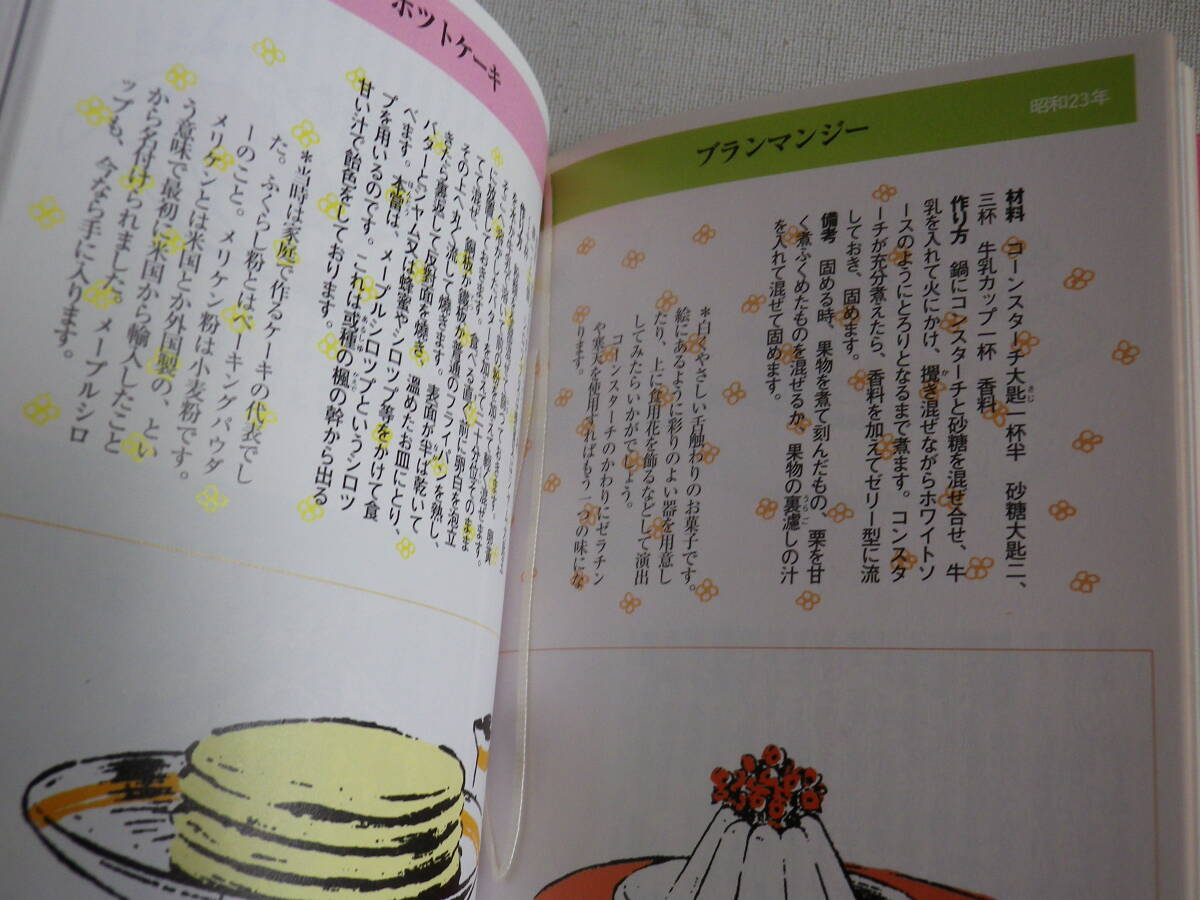 昭和23年
ブランマンジー
材料　コーンスターチ大匙一杯半　砂糖大匙二、
三杯　牛乳カップ一杯　香料
作り方　鍋にコンスターチと砂糖を混ぜ合せ、牛
乳を入れて火にかけ、攪き混ぜながらホワイトソ
ースのようにとろりとなるまで煮ます。コンスタ
ーチが充分煮えたら、香料を加えてゼリー型に流
しておき、固めます。
備考　固める時、果物を煮て刻んだもの、栗を甘
く煮ふくめたものを混ぜるか、果物の裏濾しの汁
を入れて混ぜて固めます。
＊白くやさしい舌触りのお菓子です。
絵にあるように彩りのよい器を用意し
たり、上に食用花を飾るなどして演出
してみたらいかがでしょう。
コーンスターチのかわりにゼラチン
や寒天を使用すればもう一つの味にな
ります。
ホツトケーキ
てて混ぜ、鍋板か鐵板か普通のフライパンを熱し、
その上へ丸く流して燒きます。表面が半ば乾いて
きたら裏返して反對面を燒き、溫めたお皿にとり、
バターとジャム又は蜂蜜やシロップ等をかけて食
べます。本當は、メープルシロップというシロッ
プを用いるのです。これは或種の楓の幹から出る
甘い汁で飴色をしております。
＊当時は家庭で作るケーキの代表でし
た。ふくらし粉とはベーキングパウダ
ーのこと。メリケン粉は小麦粉です。
メリケンとは米国とか外国製の、とい
う意味で最初に米国から輸入したこと
から名付けられました。メープルシロ
ップも、今なら手に入ります。